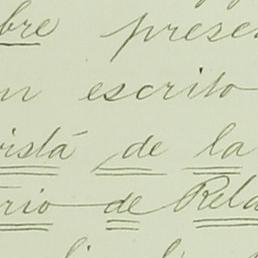 bre presen
n escrito
vista de la
rio de Rela